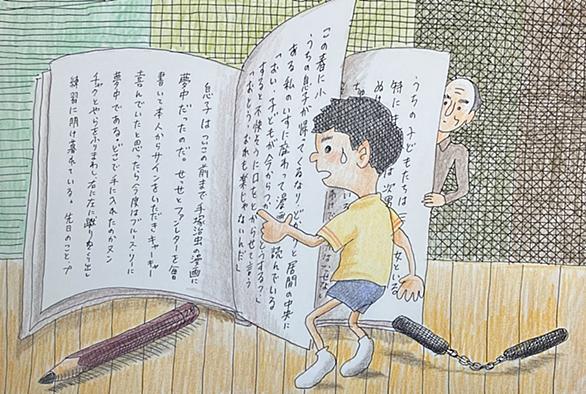 うちの子どもたちは
特に
この春に小
うちの息子が帰ってくるなり、 と居間の中央に
ある私のいすに座わって漫画 読んでいる
「おい、子どもが今から うする?」
すると不快そうに口をとがらせて言う
「おとう、おれも楽じゃないんだ」
息子はついこの前まで手塚治虫の漫画に
夢中だったのだ。せっせとファンレターを
書いて本人からサインをいただきキャーキャー
喜んでいたと思ったら今度はブルース・リーに
夢中である。どこで手に入れたのかヌン
チャクとやらをふりまわし、右に左に蹴りをくり出し
練習に明け暮れている。先日のこと、プ